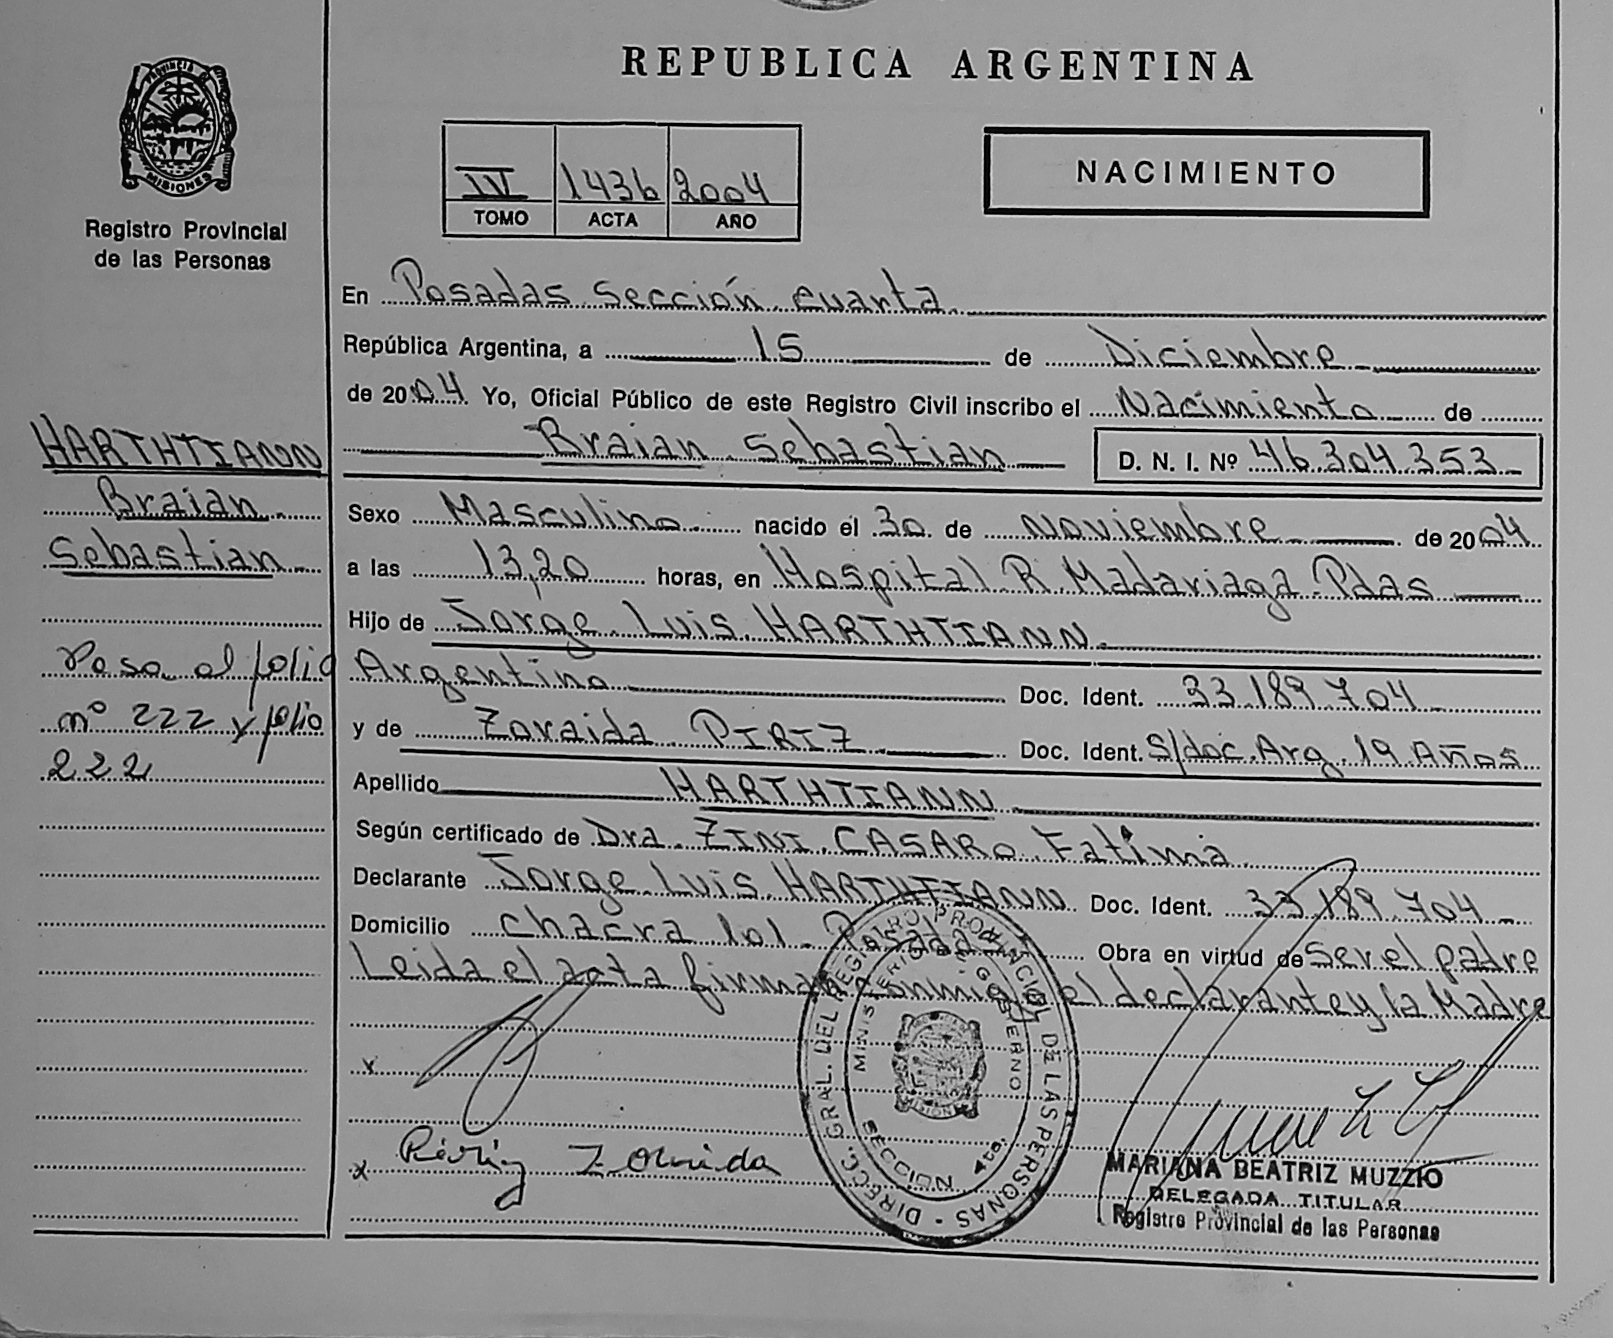 REPUBLICA ARGENTINA
PROVINCIA DE
MISIONES
Registro Provincial
de las Personas
IV 1436 2004
TOMO ACTA AÑO
NACIMIENTO
En Posadas Sección Cuarta
República Argentina, a 15 de Diciembre
de 2004 Yo, Oficial Público de este Registro Civil inscribo el Nacimiento de
Braian Sebastian D. N. I. Nº 46.304.353
Sexo Masculino nacido el 30 de Noviembre de 2004
a las 13,20 horas, en Hospital R. Madariaga. Pdas
Hijo de Jorge Luis HARTHTIANN
Argentino Doc. Ident. 33.189.704
y de Zoraida PIRIZ Doc. Ident. S/doc. Arg. 19 Años
Apellido HARTHTIANN
Según certificado de Dra. ZINI CASARO Fatima
Declarante Jorge Luis HARTHTIANN Doc. Ident. 33.189.704
Domicilio Chacra 101 - Posadas Obra en virtud de Ser el padre
Leida el acta firman conmigo el declarante y la Madre
HARTHTIANN
Braian
Sebastian
Pasa al folio
nº 222 y folio
222
x
x Piriz Zoraida
DIRECC. GRAL. DEL REGISTRO PROVINCIAL DE LAS PERSONAS
MINISTERIO DE GOBIERNO
SECCION 4ta.
MARIANA BEATRIZ MUZZIO
DELEGADA TITULAR
Registro Provincial de las Personas